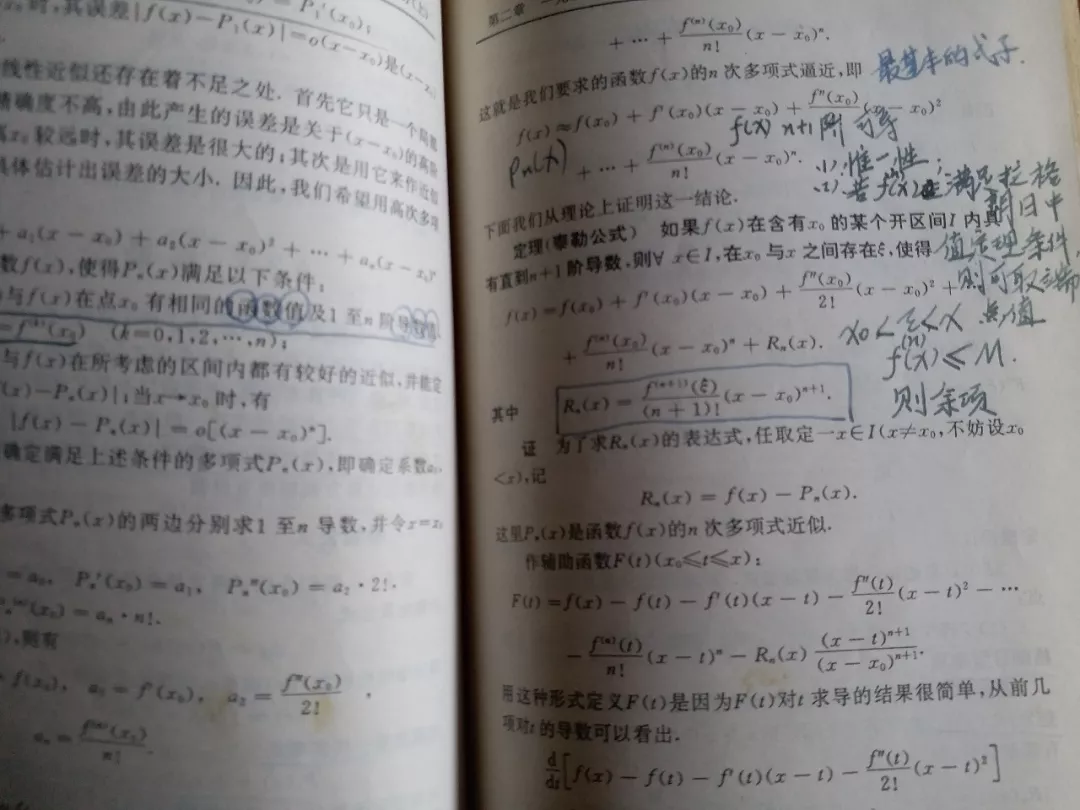 时,其误差|f(x)-P₁(x)|=o(x-x₀)是(x-x₀
线性近似还存在着不足之处. 首先它只是一个局部
精确度不高,由此产生的误差是关于(x-x₀)的高阶
x₀ 较远时,其误差是很大的;其次是用它来作近似
具体估计出误差的大小. 因此,我们希望用高次多项
+ a₁(x - x₀) + a₂(x - x₀)² + ⋯ + aₙ(x - x₀)ⁿ
数f(x),使得Pₙ(x)满足以下条件:
与f(x)在点x₀ 有相同的函数值及1 至n 阶导数值
(k=0,1,2,⋯,n);
与f(x)在所考虑的区间内都有较好的近似,并能定
(x)-Pₙ(x)|;当x→x₀ 时,有
|f(x) - Pₙ(x)| = o[(x - x₀)ⁿ].
确定满足上述条件的多项式Pₙ(x),即确定系数a₀,
多项式Pₙ(x)的两边分别求1 至n 导数,并令x=x₀
= a₀, Pₙ′(x₀) = a₁, Pₙ″(x₀) = a₂ · 2!,
Pₙ⁽ⁿ⁾(x₀) = aₙ · n!.
),则有
f(x₀), a₁ = f′(x₀), a₂ = f″(x₀)/2! ,
aₙ = f⁽ⁿ⁾(x₀)/n! .
第二章
+ ⋯ + f⁽ⁿ⁾(x₀)/n! (x - x₀)ⁿ.
这就是我们要求的函数f(x)的n 次多项式逼近,即 最基本的式子.
f(x) ≈ f(x₀) + f′(x₀)(x - x₀) + f″(x₀)/2! (x - x₀)²
f(x) n+1阶可导
Pn(x) + ⋯ + f⁽ⁿ⁾(x₀)/n! (x - x₀)ⁿ. (1). 惟一性;
(2). 若f(x)在满足拉格
下面我们从理论上证明这一结论. 朗日中
定理(泰勒公式) 如果f(x)在含有x₀ 的某个开区间I 内具
有直到n+1 阶导数,则∀ x∈I,在x₀ 与x 之间存在ξ,使得 值定理条件,
f(x) = f(x₀) + f′(x₀)(x - x₀) + f″(x₀)/2! (x - x₀)² + 则可取端
点值
x₀<ξ<x
+ f⁽ⁿ⁾(x₀)/n! (x - x₀)ⁿ + Rₙ(x). f⁽ⁿ⁾(x) ≤ M.
其中 Rₙ(x) = f⁽ⁿ⁺¹⁾(ξ)/(n + 1)! (x - x₀)ⁿ⁺¹. 则余项
证 为了求Rₙ(x)的表达式,任取定一x∈I(x≠x₀,不妨设x₀
<x),记
Rₙ(x) = f(x) - Pₙ(x).
这里Pₙ(x)是函数f(x)的n 次多项式近似.
作辅助函数F(t)(x₀≤t≤x):
F(t) = f(x) - f(t) - f′(t)(x - t) - f″(t)/2! (x - t)² - ⋯
- f⁽ⁿ⁾(t)/n! (x - t)ⁿ - Rₙ(x) (x - t)ⁿ⁺¹/(x - x₀)ⁿ⁺¹.
用这种形式定义F(t)是因为F(t)对t 求导的结果很简单,从前几
项对t 的导数可以看出.
d/dt [f(x) - f(t) - f′(t)(x - t) - f″(t)/2! (x - t)²]